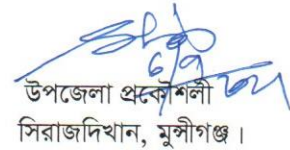 উপজেলা প্রকৌশলী
সিরাজদিখান, মুন্সীগঞ্জ।